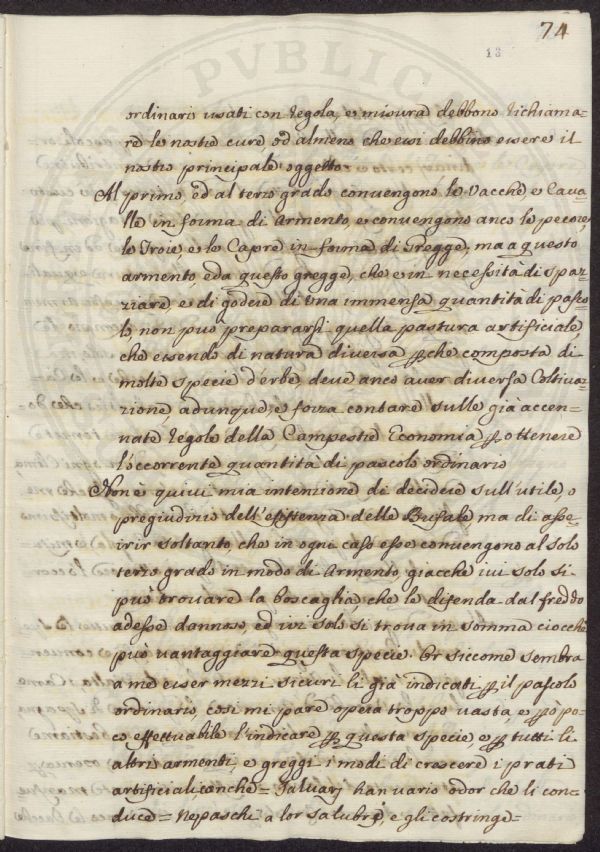 74
13
PVBLICA
ordinario usati con regola, e misura debbono richiama=
re le nostre cure od almeno che essi debbino essere il
nostro principale oggetto
Al primo, ed al terzo grado convengono le Vacche e Cava=
lle in forma di Armento, e convengono anco le pecore,
le Troie, e le Capre in forma di Gregge, ma a questo
armento, e da questo gregge, che e in necessità di spaz=
ziare e di godere di una immensa quantità di pasco
lo non può prepararsi quella pastura artificiale,
che essendo di natura diversa pche composta di
molte specie d'erbe, deve anco aver diversa Coltiva=
zione, adunque, e forza contare sulle già accen=
nate regole della Campestre Economia p ottenere
l'occorrente quantità di pascolo ordinario
Non è quivi mia intenzione di decidere sull'utile, o
pregiudizio dell'esistenza delle Bufale, ma di asse=
rir soltanto, che in ogni caso esse convengono al solo
terzo grado in modo di Armento, giacche ivi solo si
può trovare la boscaglia, che le difenda dal freddo
ad esse dannoso, ed ivi solo si trova in somma ciocche
può vantaggiare questa specie. Or siccome sembra
a me esser mezzi sicuri li già indicati p il pascolo
ordinario, cosi mi pare opera troppo vasta, e pciò po=
co effettuabile l'indicare p questa specie, e p tutti li
altri armenti, e greggi i modi di crescere i prati
artificiali conche = Salvarj han vario odor che li con=
duce = Ne paschi a lor salubri, e gli costringe=